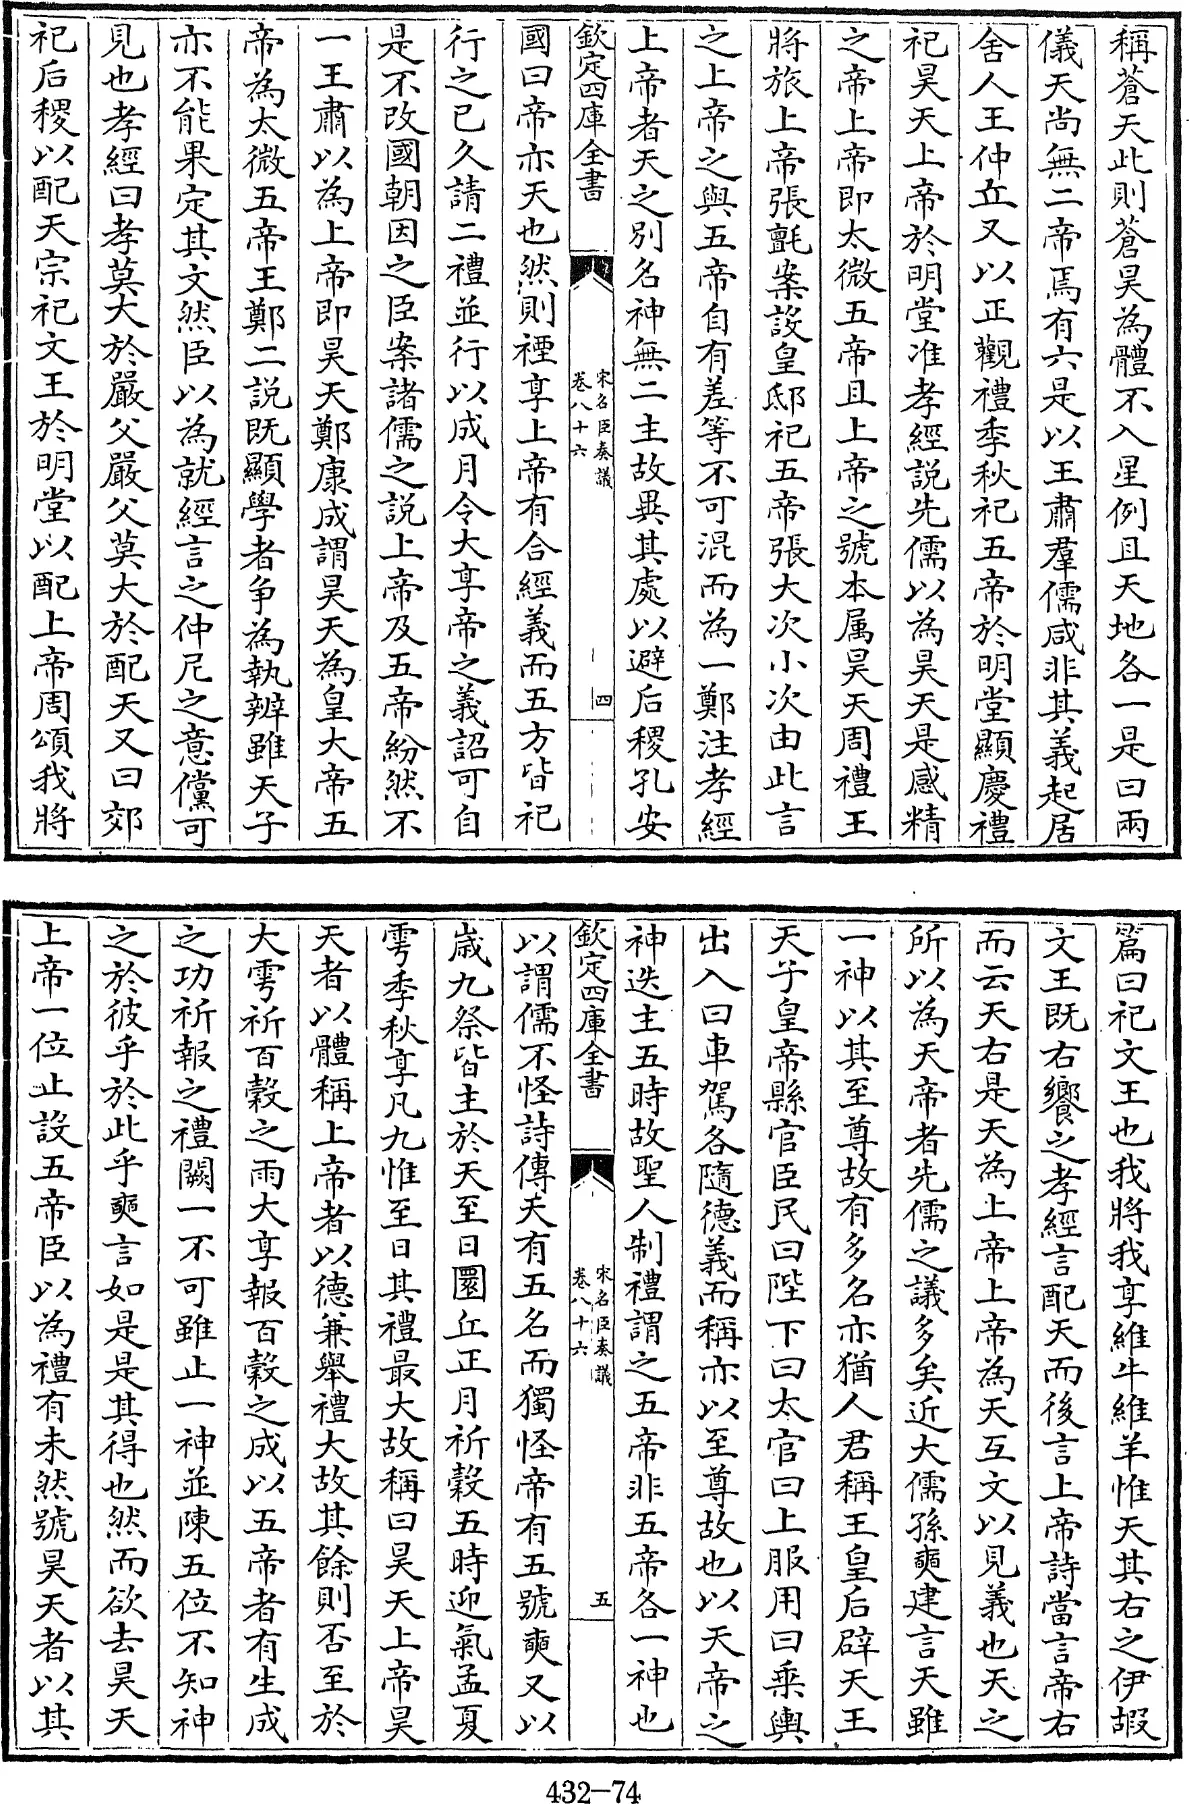 稱蒼天此則蒼昊為體不入星例且天地各一是曰兩
儀天尚無二帝焉有六是以王肅羣儒咸非其義起居
舍人王仲丘又以正觀禮季秋祀五帝於明堂顯慶禮
祀昊天上帝於明堂准孝經說先儒以為昊天是感精
之帝上帝即太微五帝且上帝之號本属昊天周禮王
將旅上帝張氊案設皇邸祀五帝張大次小次由此言
之上帝之與五帝自有差等不可混而為一鄭注孝經
上帝者天之别名神無二主故異其處以避后稷孔安
欽定四庫全書
宋名臣奏議
卷八十六
四
國曰帝亦天也然則禋享上帝有合經義而五方皆祀
行之已久請二禮並行以成月令大享帝之義詔可自
是不改國朝因之臣案諸儒之説上帝及五帝紛然不
一王肅以為上帝即昊天鄭康成謂昊天為皇大帝五
帝為太微五帝王鄭二説既顯學者争為執辨雖天子
亦不能果定其文然臣以為就經言之仲尼之意儻可
見也孝經曰孝莫大於嚴父嚴父莫大於配天又曰郊
祀后稷以配天宗祀文王於明堂以配上帝周頌我將
篇曰祀文王也我將我享維牛維羊惟天其右之伊嘏
文王既右饗之孝經言配天而後言上帝詩當言帝右
而云天右是天為上帝上帝為天互文以見義也天之
所以為天帝者先儒之議多矣近大儒孫奭建言天雖
一神以其至尊故有多名亦猶人君稱王皇后辟天王
天子皇帝縣官臣民曰陛下曰太官曰上服用曰乘輿
出入曰車駕各隨德義而稱亦以至尊故也以天帝之
神迭主五時故聖人制禮謂之五帝非五帝各一神也
欽定四庫全書
宋名臣奏議
卷八十六
五
以謂儒不怪詩傳天有五名而獨怪帝有五號奭又以
歳九祭皆主於天至日圜丘正月祈穀五時迎氣孟夏
雩季秋享凡九惟至日其禮最大故稱曰昊天上帝昊
天者以體稱上帝者以德兼舉禮大故其餘則否至於
大雩祈百穀之雨大享報百穀之成以五帝者有生成
之功祈報之禮闕一不可雖止一神並陳五位不知神
之於彼乎於此乎奭言如是是其得也然而欲去昊天
上帝一位止設五帝臣以為禮有未然號昊天者以其